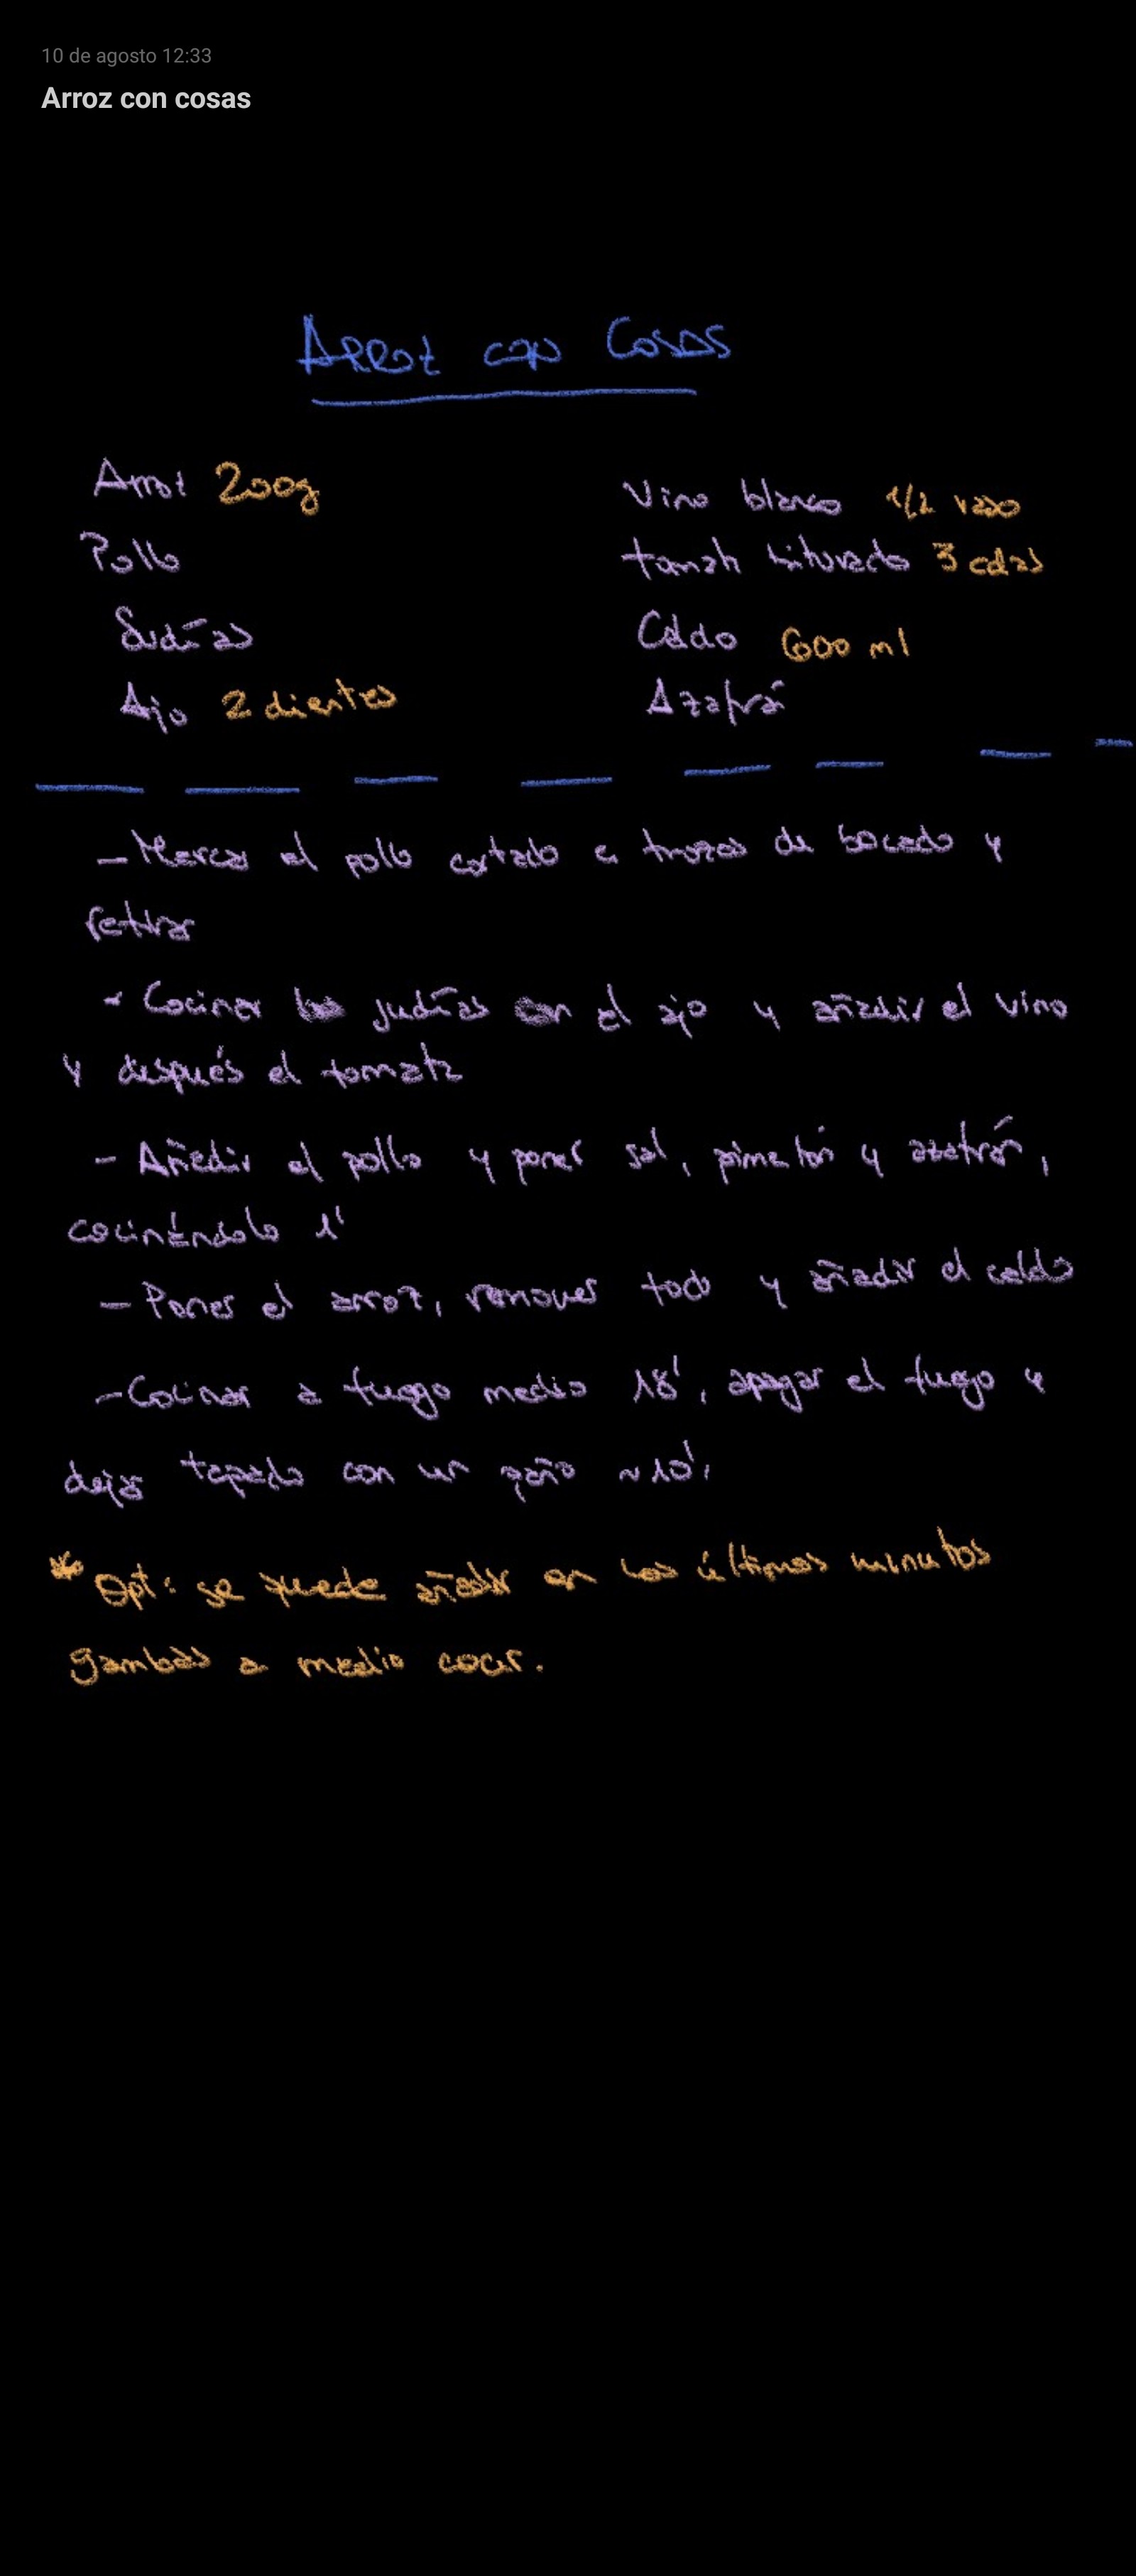 10 de agosto 12:33
Arroz con cosas
Arroz con Cosas
Arroz 200g
Vino blanco 1/2 vaso
Pollo
tomate triturado 3 cdas
Judías
Caldo 600 ml
Ajo 2 dientes
Azafrá
- Marcar el pollo cortado a trozos de bocado y
retirar
- Cocinar las judías con el ajo y añadir el vino
y después el tomate
- Añadir el pollo y poner sal, pimetón y azafrán,
cocinándolo 1'
- Poner el arroz, remover todo y añadir el caldo
- Cocinar a fuego medio 18', apagar el fuego y
dejar tapado con un paño ~10'.
* Opt: se puede añadir en los últimos minutos
gambas a medio cocer.